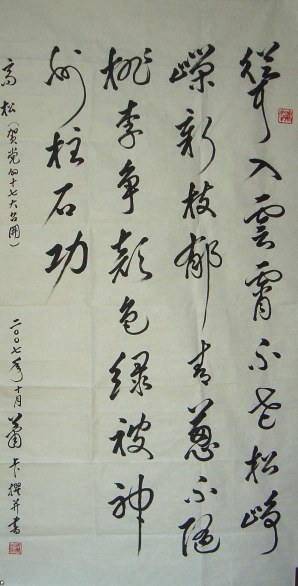 聳入雲霄不老松崢
嶸新枝郁青葱不随
桃李争颜色绿被神
州柱石功
高松（贺党的十七大召開）二〇〇七年十月萧卡撰并書